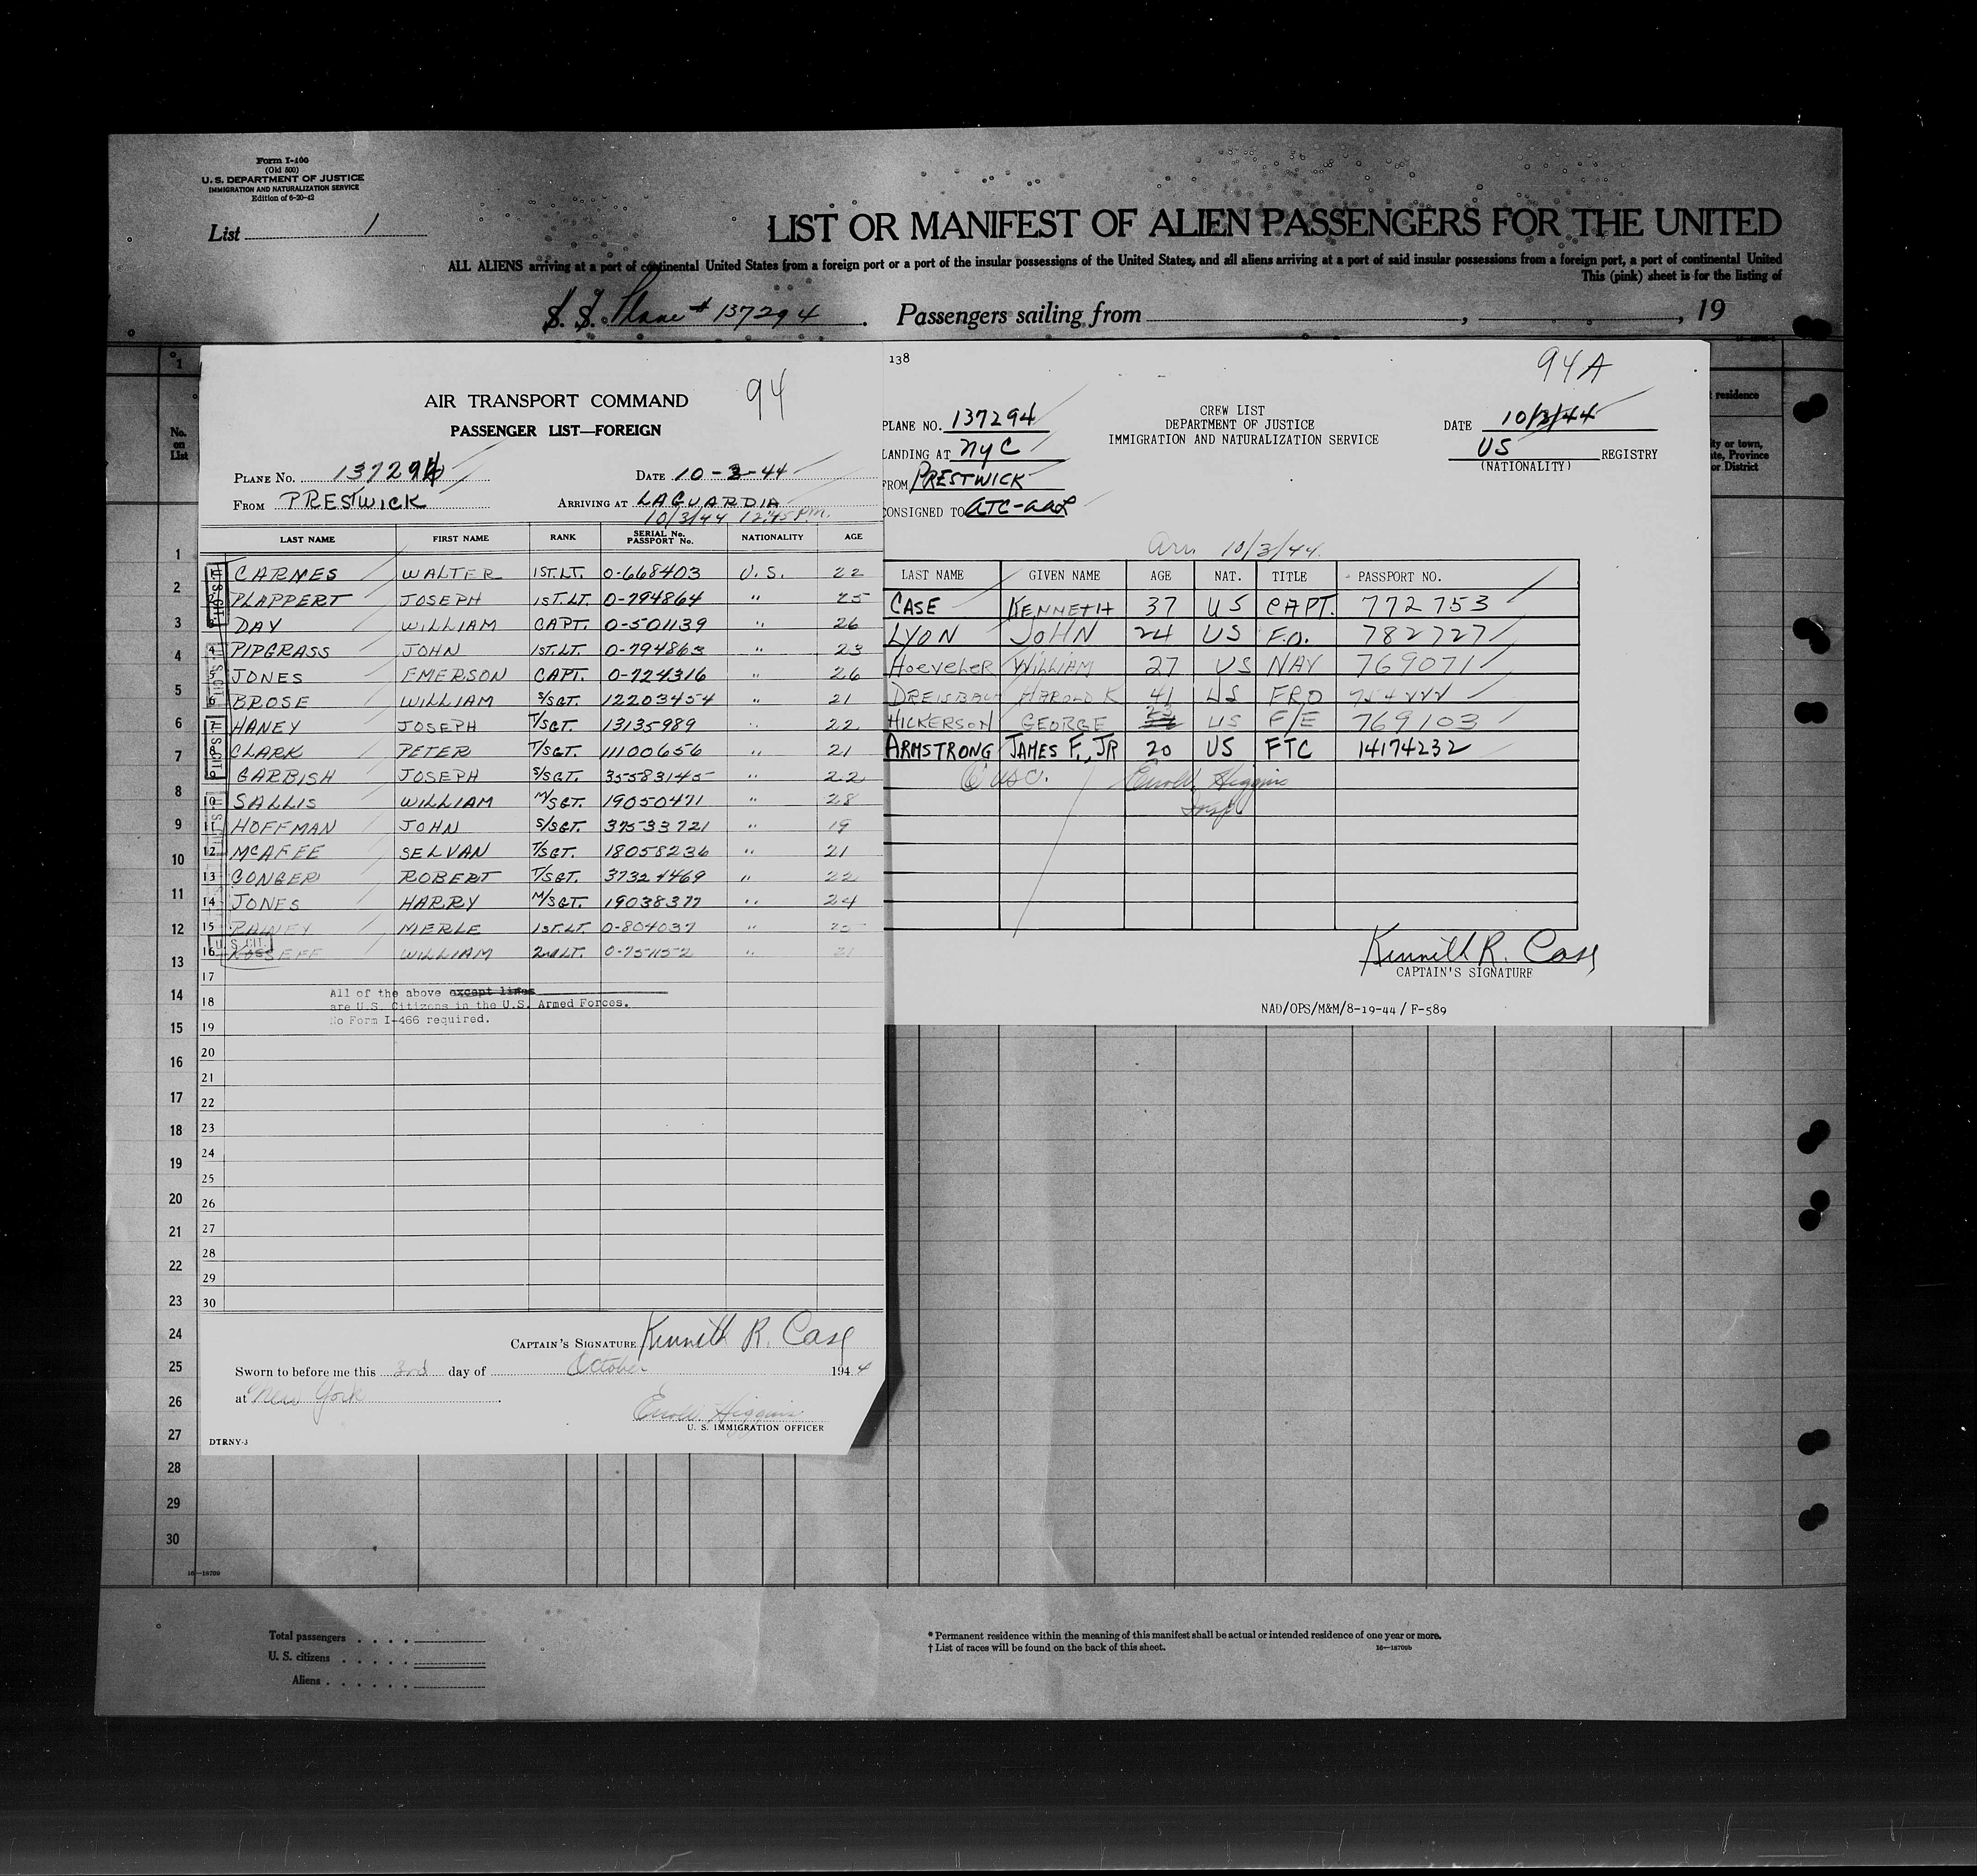 Form I-400
(Old 500)
U. S. DEPARTMENT OF JUSTICE
IMMIGRATION AND NATURALIZATION SERVICE
Edition of 6-20-42
List 1
LIST OR MANIFEST OF ALIEN PASSENGERS FOR THE UNITED
ALL ALIENS arriving at a port of continental United States from a foreign port or a port of the insular possessions of the United States, and all aliens arriving at a port of said insular possessions from a foreign port, a port of continental United
This (pink) sheet is for the listing of
S. S. Plane # 137294. Passengers sailing from , , 19
1
No.
on
List
residence
ity or town,
te, Province
or District
AIR TRANSPORT COMMAND 94
PASSENGER LIST—FOREIGN
PLANE No. 137294 DATE 10-3-44
FROM PRESTWICK ARRIVING AT LAGUARDIA
10/3/44 12:45 P.M.
LAST NAME FIRST NAME RANK SERIAL No. PASSPORT No. NATIONALITY AGE
CARNES WALTER 1ST.LT. 0-668403 U.S. 22
PLAPPERT JOSEPH 1ST.LT. 0-794864 " 25
DAY WILLIAM CAPT. 0-501139 " 26
4 PIPGRASS JOHN 1ST.LT. 0-794863 " 23
5 JONES EMERSON CAPT. 0-724316 " 26
6 BROSE WILLIAM S/SGT. 12203454 " 21
7 HANEY JOSEPH T/SGT. 13135989 " 22
8 CLARK PETER T/SGT. 11100656 " 21
9 GARBISH JOSEPH S/SGT. 35583145 " 22
10 SALLIS WILLIAM M/SGT. 19050471 " 28
11 HOFFMAN JOHN S/SGT. 37533721 " 19
12 McAFEE SELVAN T/SGT. 18058236 " 21
13 CONGER ROBERT T/SGT. 37324469 " 22
14 JONES HARRY M/SGT. 19038377 " 24
15 RAINEY MERLE 1ST.LT. 0-804037 "
U. S. CIT.
16 WILLIAM 2nd LT. 0-751152 " 21
17
18
19
All of the above except lines
are U.S. Citizens in the U.S. Armed Forces.
No Form I-466 required.
20
21
22
23
24
25
26
27
28
29
30
CAPTAIN'S SIGNATURE Kenneth R. Case
Sworn to before me this 3rd day of October 1944
at New York
Errol W. Higgins
U. S. IMMIGRATION OFFICER
DTRNY-3
138
94A
PLANE NO. 137294
LANDING AT NYC
FROM PRESTWICK
CONSIGNED TO ATC-AAL
CREW LIST
DEPARTMENT OF JUSTICE
IMMIGRATION AND NATURALIZATION SERVICE
DATE 10/3/44
US REGISTRY
(NATIONALITY)
Arr. 10/3/44
LAST NAME GIVEN NAME AGE NAT. TITLE PASSPORT NO.
CASE KENNETH 37 US CAPT. 772753
LYON JOHN 24 US F.O. 782727
HOEVELER WILLIAM 27 US NAV 769071
DREISBACH HAROLD K 41 US FRO
HICKERSON GEORGE 23 US F/E 769103
ARMSTRONG JAMES F., JR 20 US FTC 14174232
6 USC. Errol W. Higgins
Insp
Kenneth R. Case
CAPTAIN'S SIGNATURE
NAD/OPS/M&M/8-19-44 / F-589
1
2
3
4
5
6
7
8
9
10
11
12
13
14
15
16
17
18
19
20
21
22
23
24
25
26
27
28
29
30
16—18709
Total passengers
U. S. citizens
Aliens
* Permanent residence within the meaning of this manifest shall be actual or intended residence of one year or more.
† List of races will be found on the back of this sheet. 16—18709b